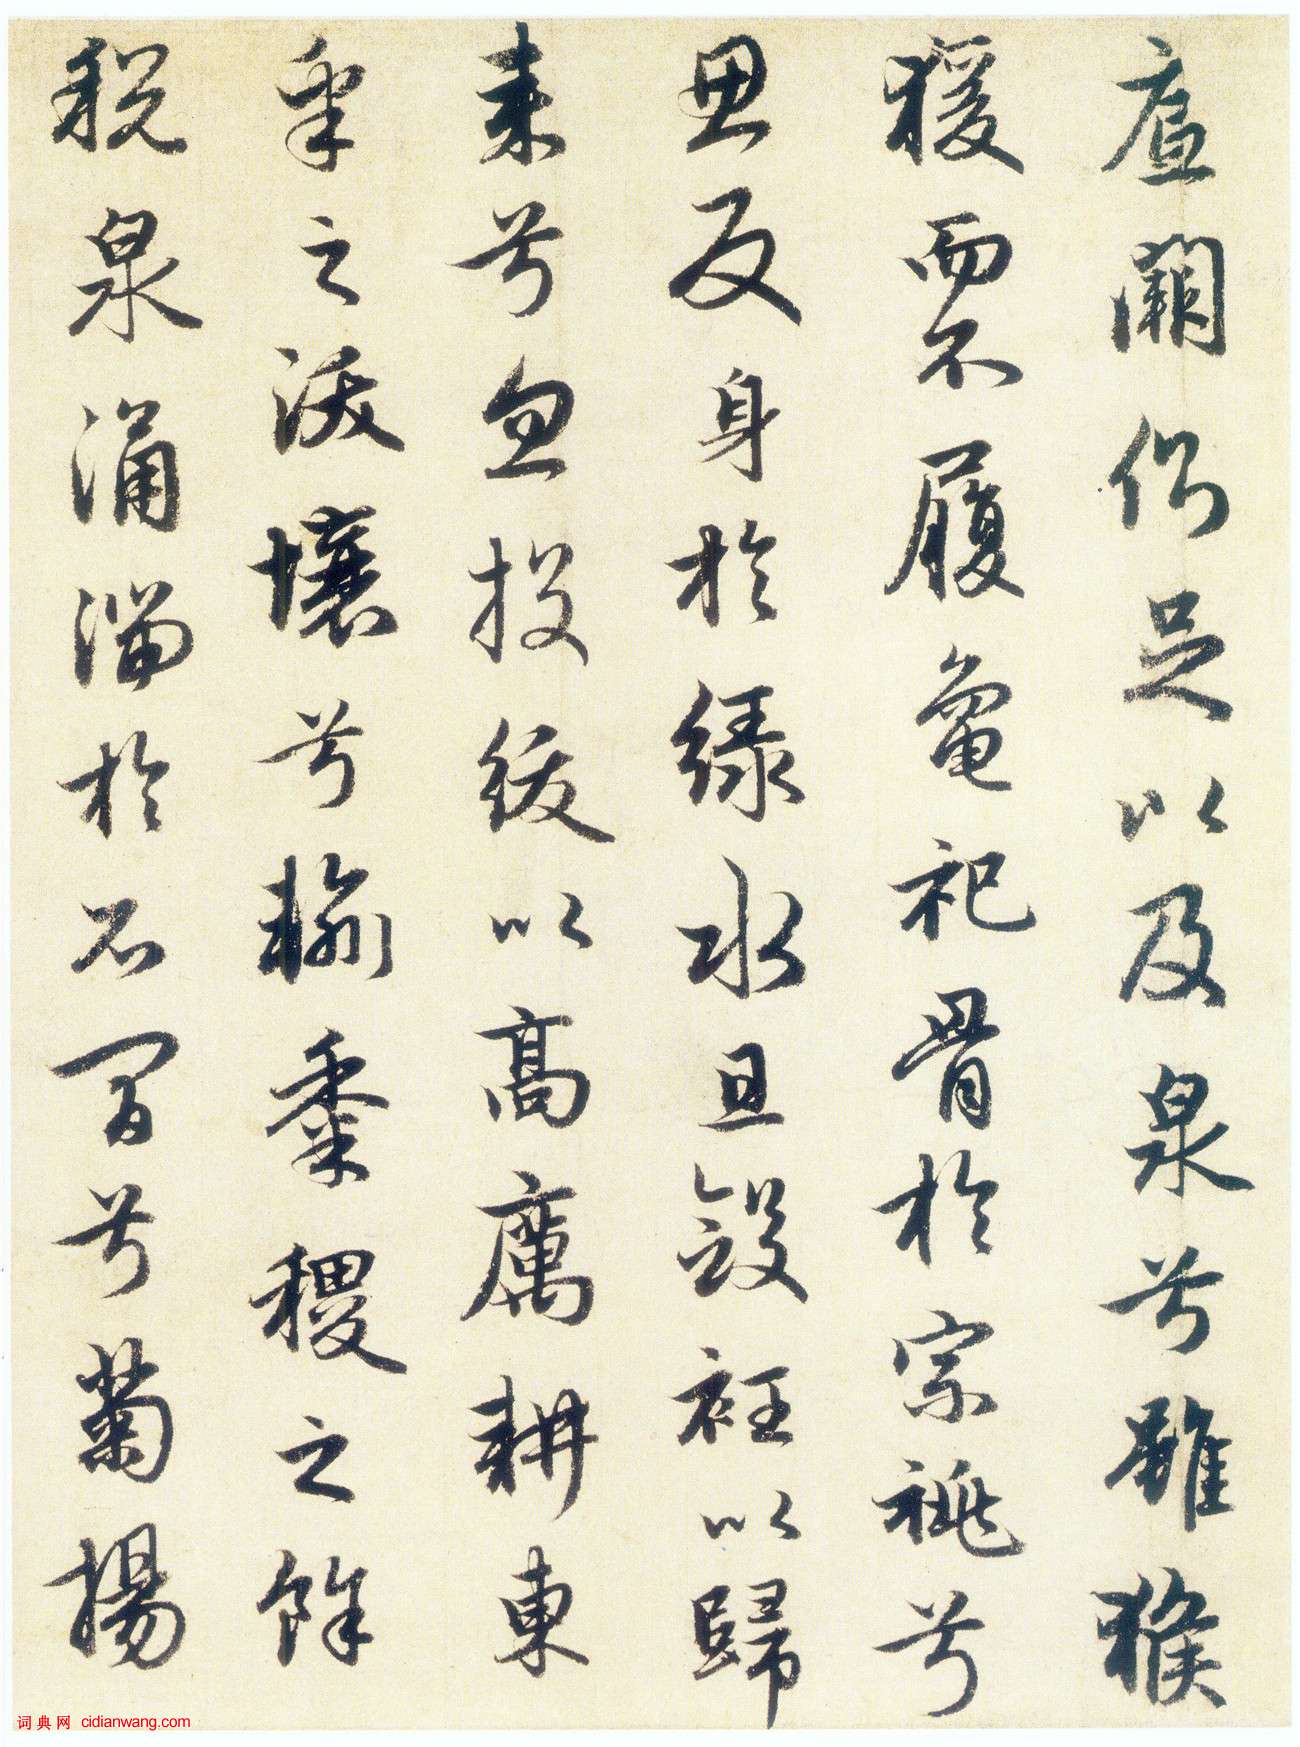 底闕側足以及泉兮雖猴
猨而不履龜祀骨於宗祧兮
思反身於綠水且斂衽以歸
来兮忽投紱以高厲耕東
皋之沃壤兮輸黍稷之餘
稅泉涌湍於石間兮菊揚
词典网 cidianwang.com